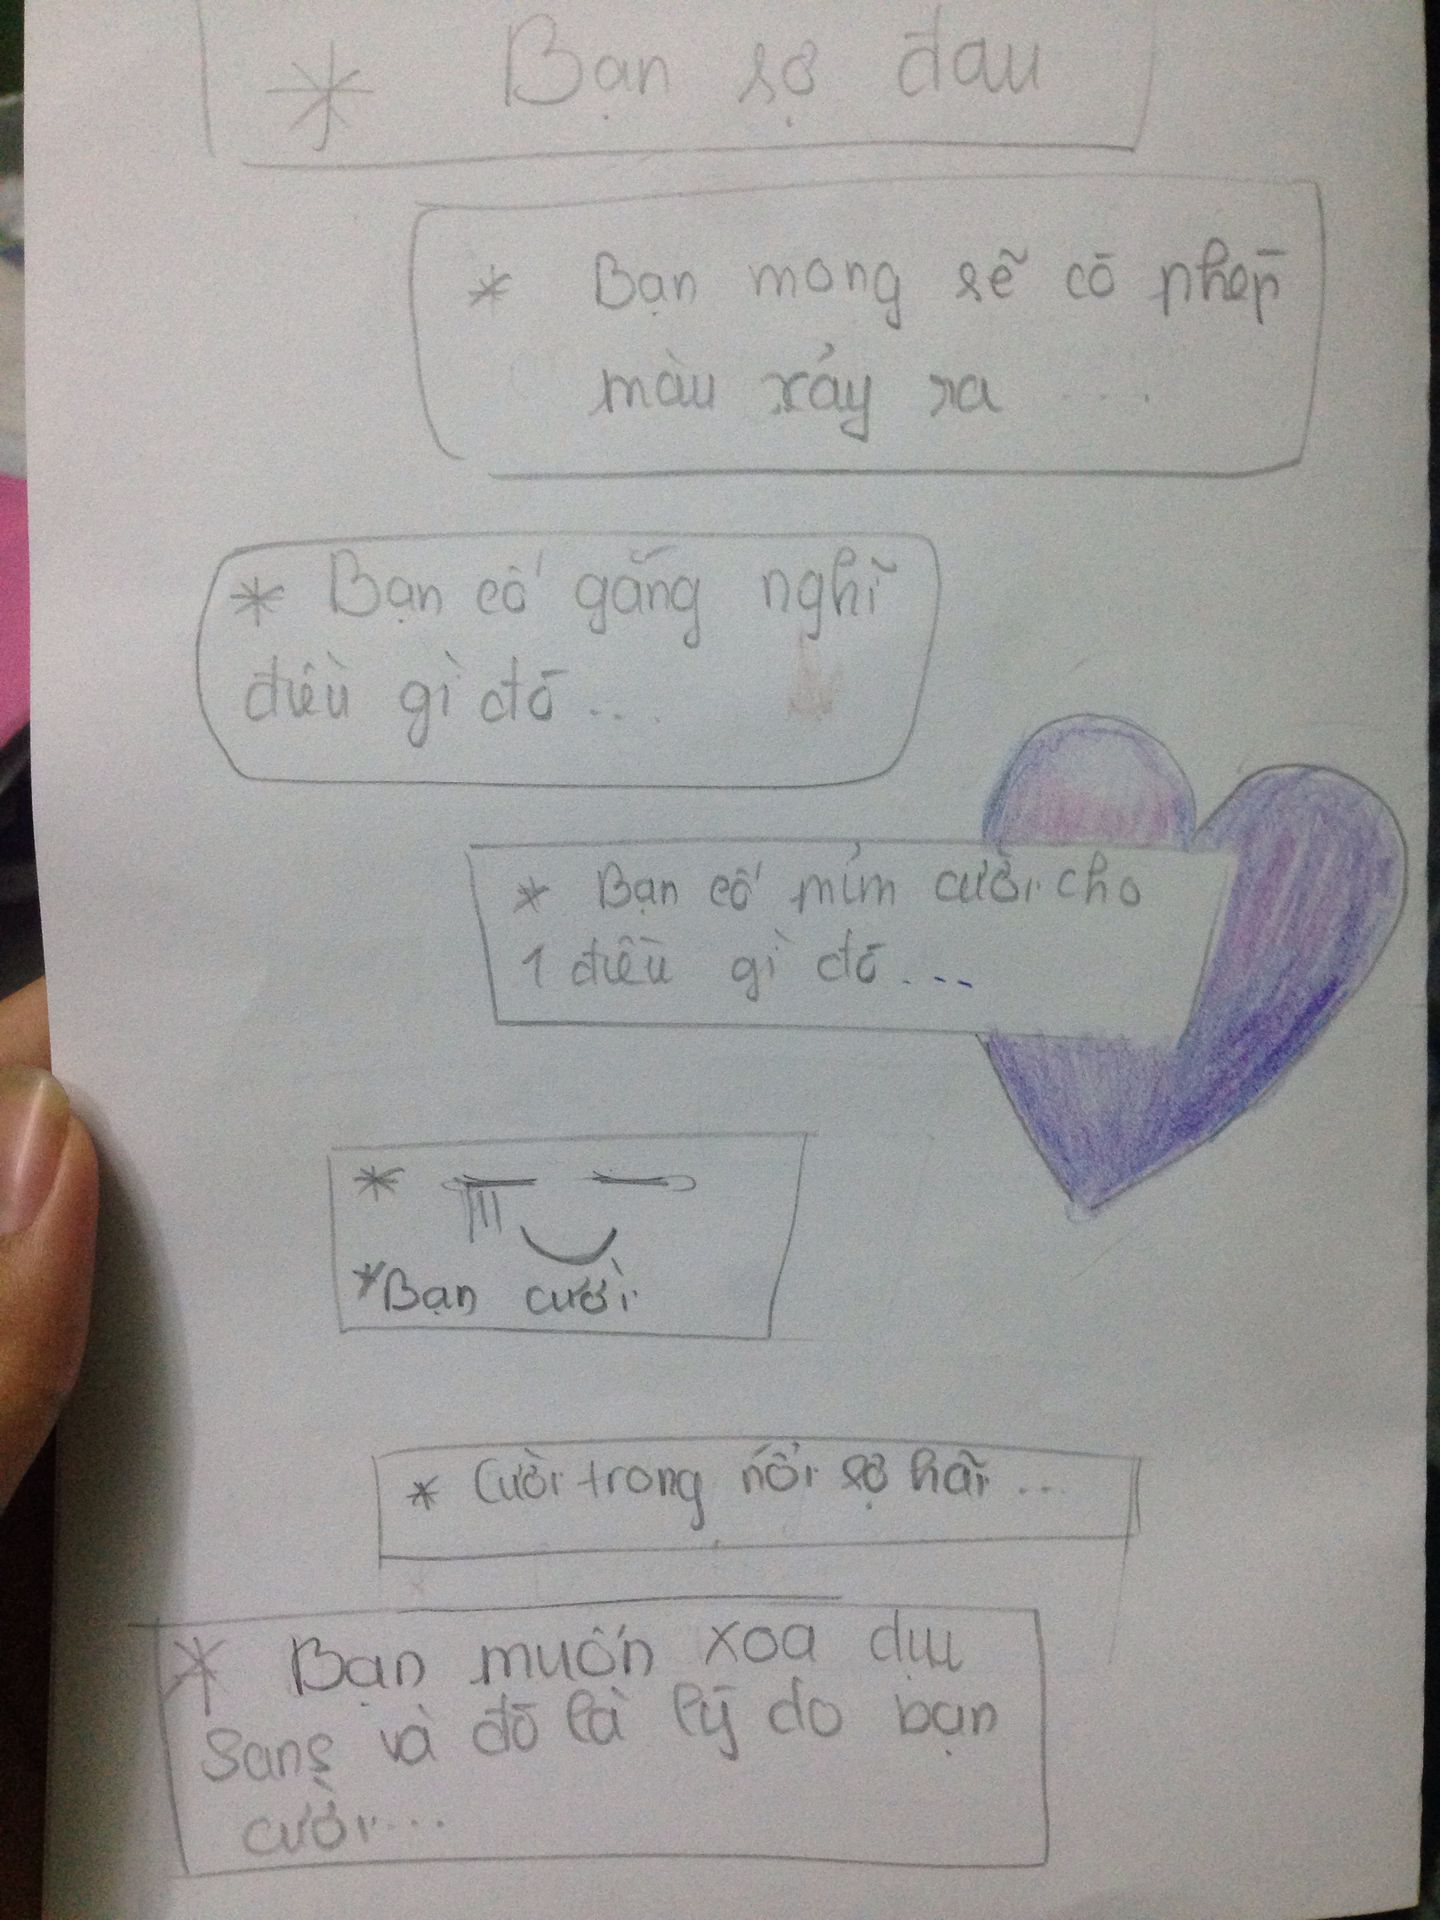 * Bạn sợ đau
* Bạn mong sẽ có phép
màu xảy ra ....
* Bạn cố gắng nghĩ
điều gì đó ....
* Bạn cố mỉm cười cho
1 điều gì đó ....
*
*Bạn cười
* Cười trong nổi sợ hãi ...
* Bạn muốn xoa dịu
Sans và đó là lý do bạn
cười ...